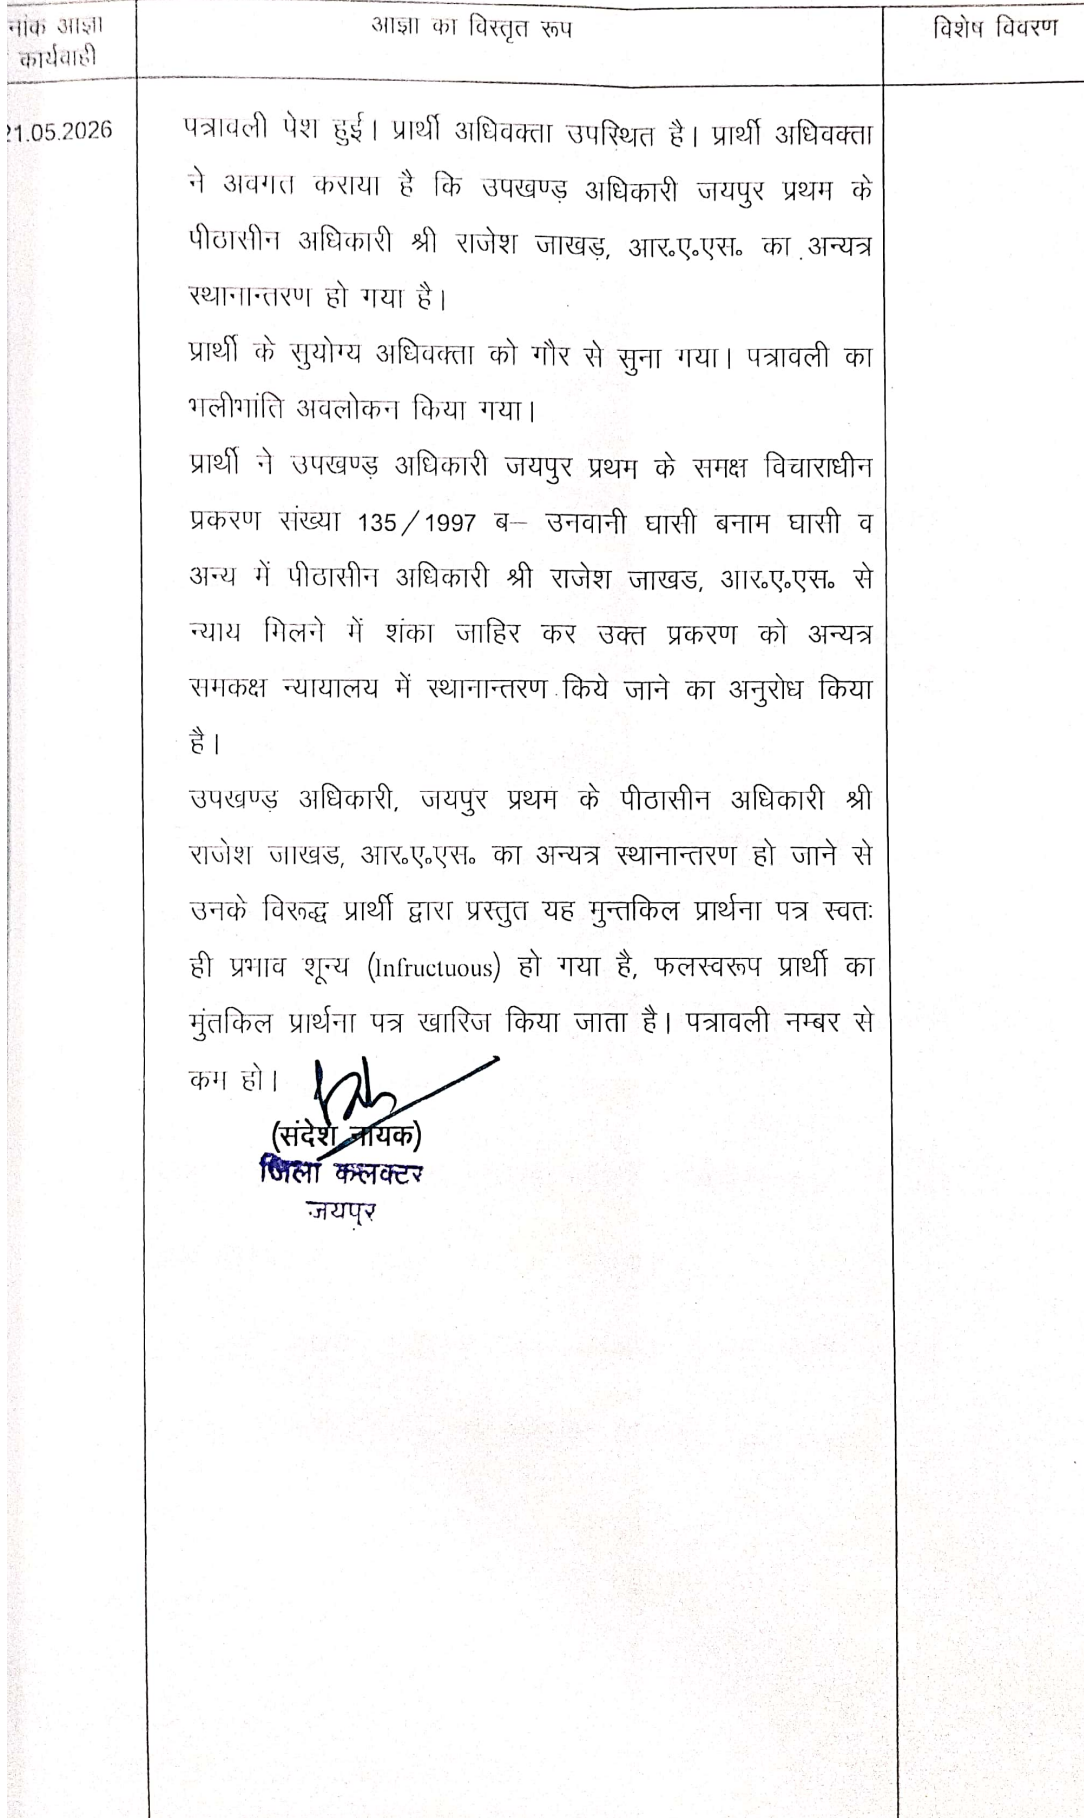 नांक आज्ञा
कार्यवाही
आज्ञा का विस्तृत रूप
विशेष विवरण
21.05.2026
पत्रावली पेश हुई। प्रार्थी अधिवक्ता उपस्थित है। प्रार्थी अधिवक्ता
ने अवगत कराया है कि उपखण्ड़ अधिकारी जयपुर प्रथम के
पीठासीन अधिकारी श्री राजेश जाखड़, आर०ए०एस० का अन्यत्र
स्थानान्तरण हो गया है।
प्रार्थी के सुयोग्य अधिवक्ता को गौर से सुना गया। पत्रावली का
भलीभांति अवलोकन किया गया।
प्रार्थी ने उपखण्ड़ अधिकारी जयपुर प्रथम के समक्ष विचाराधीन
प्रकरण संख्या 135/1997 ब– उनवानी घासी बनाम घासी व
अन्य में पीठासीन अधिकारी श्री राजेश जाखड, आर०ए०एस० से
न्याय मिलने में शंका जाहिर कर उक्त प्रकरण को अन्यत्र
समकक्ष न्यायालय में स्थानान्तरण किये जाने का अनुरोध किया
है।
उपखण्ड़ अधिकारी, जयपुर प्रथम के पीठासीन अधिकारी श्री
राजेश जाखड, आर०ए०एस० का अन्यत्र स्थानान्तरण हो जाने से
उनके विरूद्ध प्रार्थी द्वारा प्रस्तुत यह मुन्तकिल प्रार्थना पत्र स्वतः
ही प्रभाव शून्य (Infructuous) हो गया है, फलस्वरूप प्रार्थी का
मुंतकिल प्रार्थना पत्र खारिज किया जाता है। पत्रावली नम्बर से
कम हो।
(संदेश नायक)
जिला कलक्टर
जयपुर